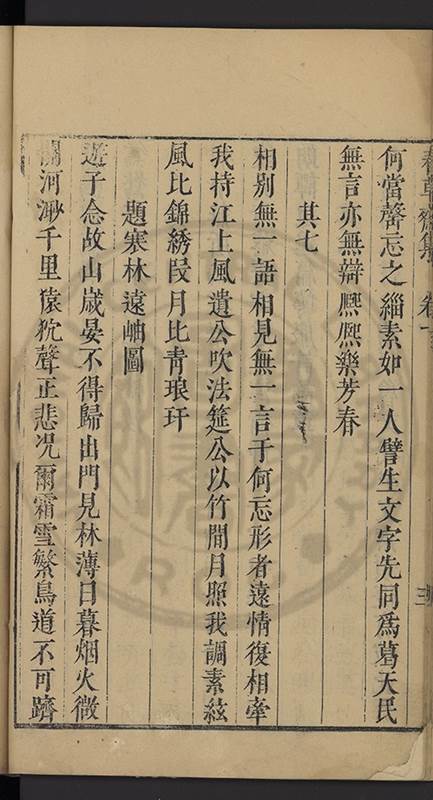 春草齋集 卷一 三
何當馨忘之緇素如一人譬生文字先同爲葛天民
無言亦無辯熈熈樂芳春
其七
相别無一語相見無一言于何忘形者遠情復相牽
我持江上風遺公吹法筵公以竹間月照我調素絃
風比錦綉段月比青琅玕
題寒林遠岫圖
遊子念故山歲晏不得歸出門見林薄日暮烟火微
關河渺千里猿狖聲正悲况爾霜雪繁鳥道不可躋